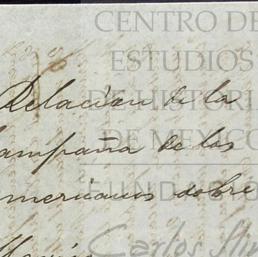 CENTRO DE
ESTUDIOS
DE HISTORIA
DE MEXICO
FUNDACIÓN
Carlos Slim
Relacion de la
campaña de los
americanos sobre